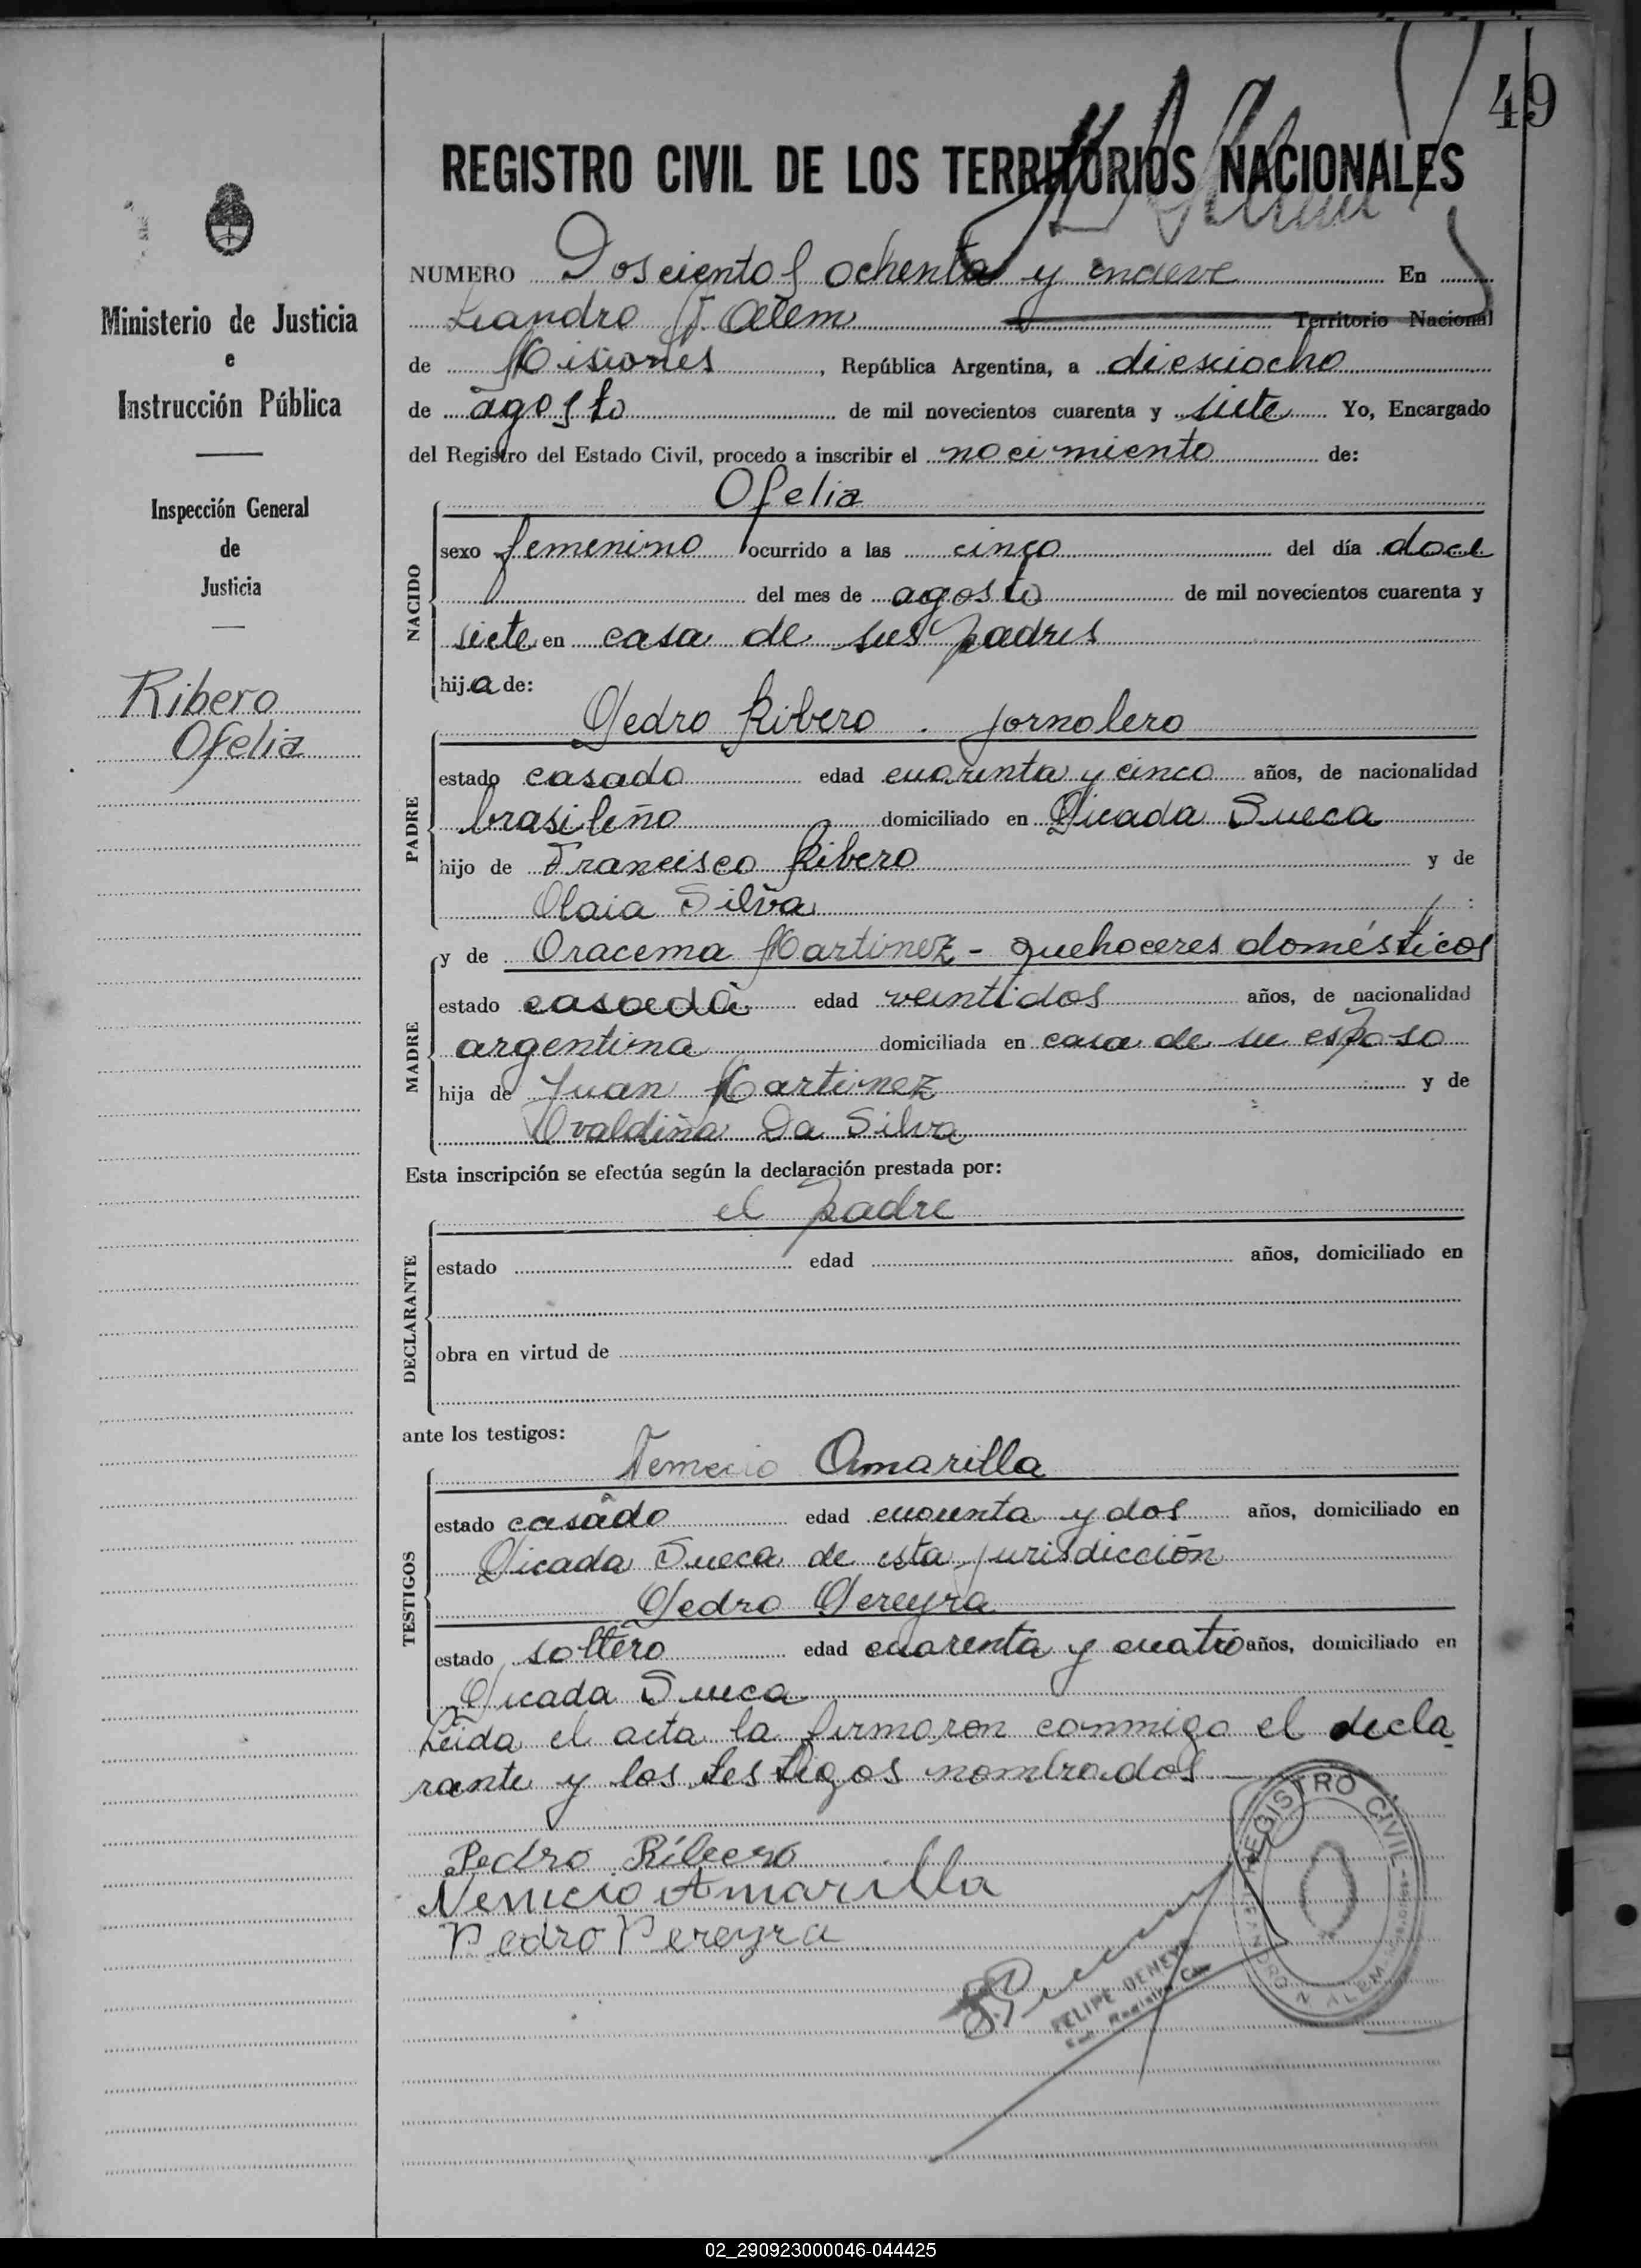 49
REGISTRO CIVIL DE LOS TERRITORIOS NACIONALES
NUMERO Doscientos ochenta y nueve En
Leandro N. Alem Territorio Nacional
de Misiones, República Argentina, a diesciocho
de agosto de mil novecientos cuarenta y siete Yo, Encargado
del Registro del Estado Civil, procedo a inscribir el nacimiento de:
Ministerio de Justicia
e
Instrucción Pública
Inspección General
de
Justicia
Ribero
Ofelia
NACIDO
Ofelia
sexo femenino ocurrido a las cinco del día doce
del mes de agosto de mil novecientos cuarenta y
siete en casa de sus padres
hija de:
PADRE
Pedro Ribero . jornalero
estado casado edad cuarenta y cinco años, de nacionalidad
brasileño domiciliado en Picada Sueca
hijo de Francisco Ribero y de
Olaia Silva :
MADRE
y de Oracema Martinez - quehaceres domésticos
estado casada edad veintidos años, de nacionalidad
argentina domiciliada en casa de su esposo
hija de Juan Martinez y de
Ovaldina Da Silva
Esta inscripción se efectúa según la declaración prestada por:
DECLARANTE
el padre
estado edad años, domiciliado en
obra en virtud de
ante los testigos:
TESTIGOS
Nemecio Amarilla
estado casado edad cuarenta y dos años, domiciliado en
Picada Sueca de esta jurisdicción
Pedro Pereyra
estado soltero edad cuarenta y cuatro años, domiciliado en
Picada Sueca
Leida el acta la firmaron conmigo el decla
rante y los testigos nombrados
Pedro Ribero
Nemecio Amarilla
Pedro Pereyra
REGISTRO CIVIL
LEANDRO N. ALEM
FELIPE
02_290923000046-044425